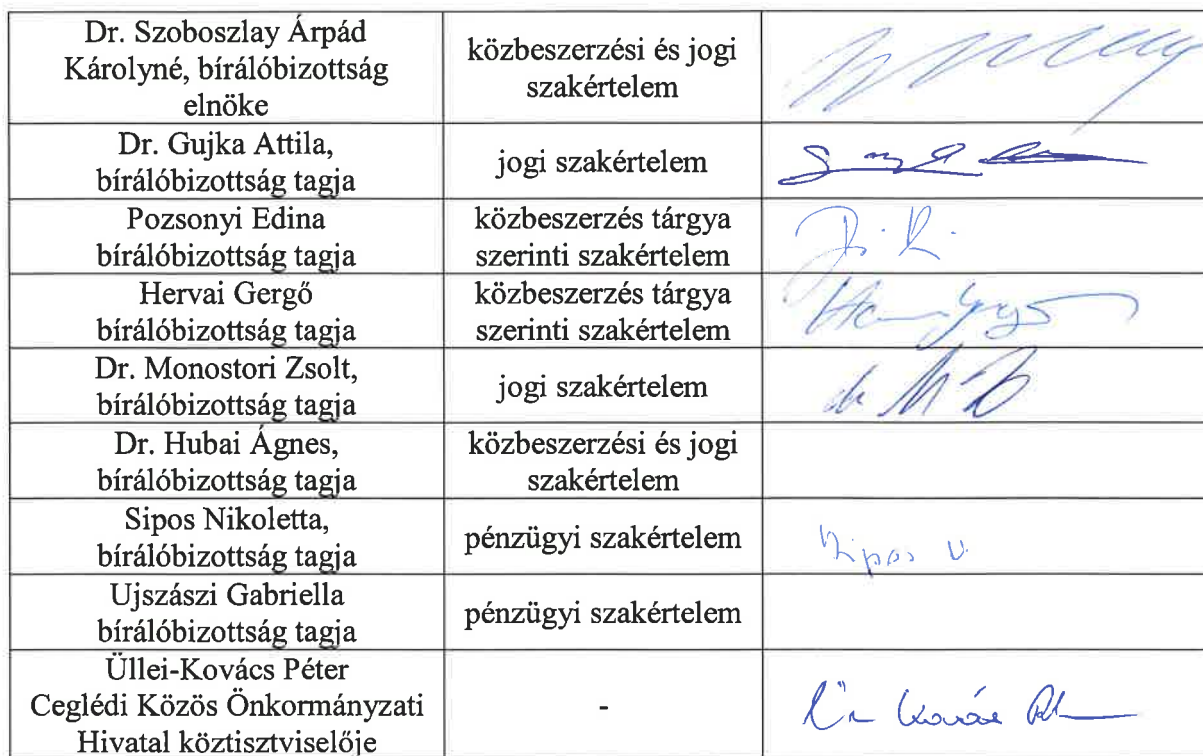 Dr. Szoboszlay Árpád
Károlyné, bírálóbizottság
elnöke
közbeszerzési és jogi
szakértelem
Dr. Gujka Attila,
bírálóbizottság tagja
jogi szakértelem
Pozsonyi Edina
bírálóbizottság tagja
közbeszerzés tárgya
szerinti szakértelem
Hervai Gergő
bírálóbizottság tagja
közbeszerzés tárgya
szerinti szakértelem
Dr. Monostori Zsolt,
bírálóbizottság tagja
jogi szakértelem
Dr. Hubai Ágnes,
bírálóbizottság tagja
közbeszerzési és jogi
szakértelem
Sipos Nikoletta,
bírálóbizottság tagja
pénzügyi szakértelem
Sipos N.
Ujszászi Gabriella
bírálóbizottság tagja
pénzügyi szakértelem
Üllei-Kovács Péter
Ceglédi Közös Önkormányzati
Hivatal köztisztviselője
-